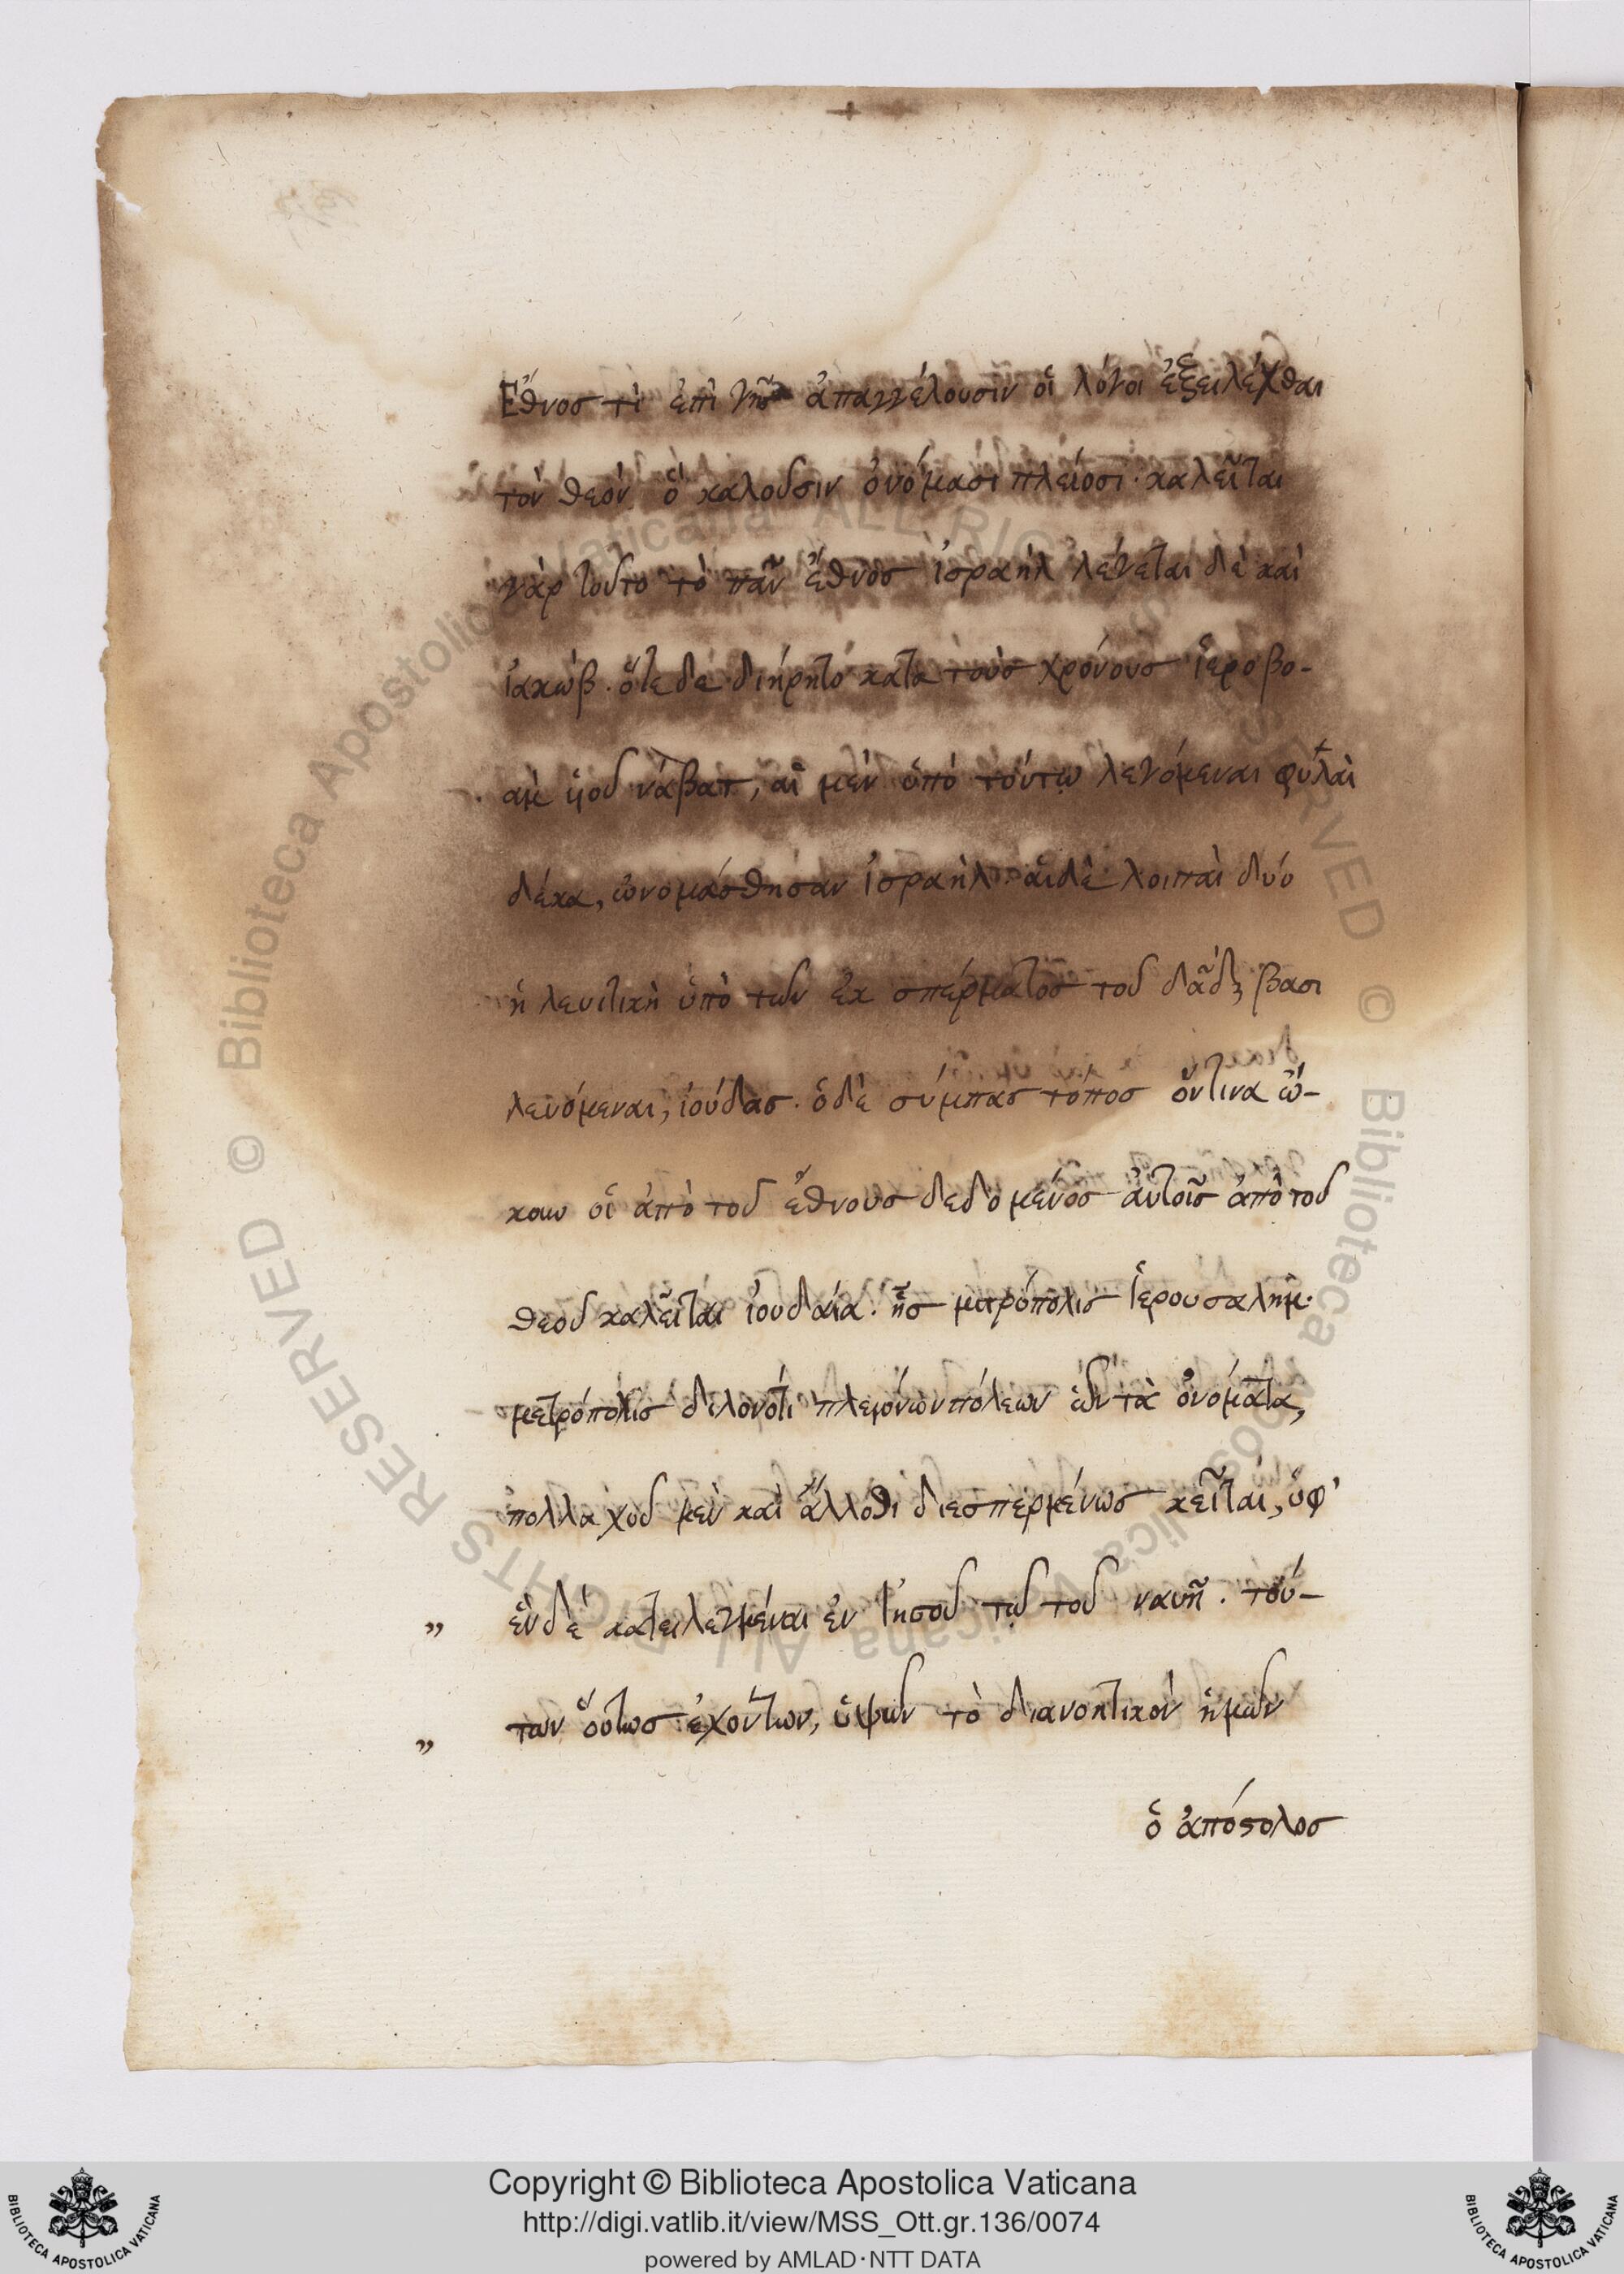 Ἔθνοσ τὶ ἐπὶ γῆσ ἀπαγγέλουσιν οἱ λόγοι ἐξειλέχθαι
τὸν θεὸν ὃ καλοῦσιν ὀνόμασι πλείοσι· καλεῖται
γὰρ τοῦτο τὸ πᾶν ἔθνοσ ἰσραὴλ λέγεται δὲ καὶ
ἰακώβ. ὅτε δὲ διήρητο κατὰ τοὺσ χρόνουσ ἱεροβο-
ὰμ ὑιοῦ νάβατ, αἱ μὲν ὑπὸ τούτῳ λεγόμεναι φυλαὶ
δέκα, ὠνομάσθησαν ἰσραὴλ· ἁιδὲ λοιπαὶ δύο
ἡ λευιτικὴ ὑπὸ τῶν ἐκ σπέρματοσ τοῦ δᾶδ βασι
λευόμεναι, ἰούδασ. ὁδὲ σύμπασ τόποσ ὅντινα ὤ-
κουν οἱ ἀπὸ τοῦ ἔθνουσ δεδομένοσ ἀυτοῖσ ἀπὸ τοῦ
θεοῦ καλεῖται ἰουδαία. ἧσ μητρόπολισ ἱερουσαλὴμ·
μετρόπολισ διλονότι πλειόνων πόλεων ὧν τὰ ὀνόματα,
πολλαχοῦ μὲν καὶ ἄλλοθι διεσπερμένωσ κεῖται, ὑφ'
„ ἓν δὲ κατειλεγμέναι ἐν Ἰησοῦ τῷ τοῦ ναυῆ. τού-
„ των ὅυτωσ ἐχόντων, ὑψῶν τὸ διανοητικὸν ἡμῶν
ὁ ἀπόστολοσ
Copyright © Biblioteca Apostolica Vaticana
http://digi.vatlib.it/view/MSS_Ott.gr.136/0074
powered by AMLAD·NTT DATA